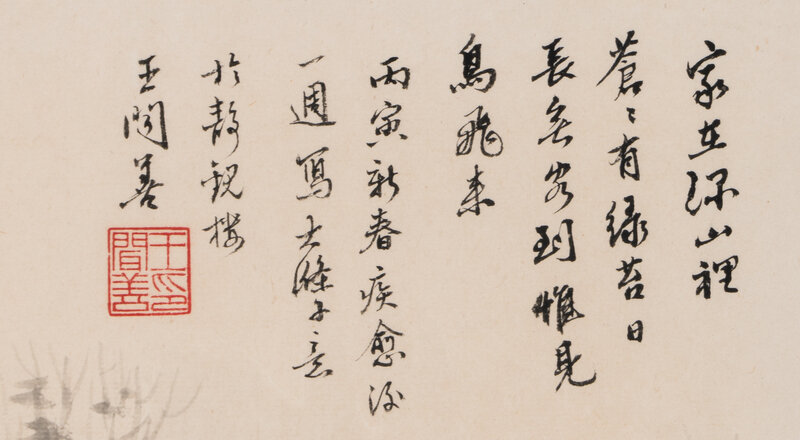 家在深山裡
蒼〻有綠苔日
長無客到惟見
鳥飛來
丙寅新春疾愈後
一週寫大滌子意
於靜觀樓
王間善
王印
間善